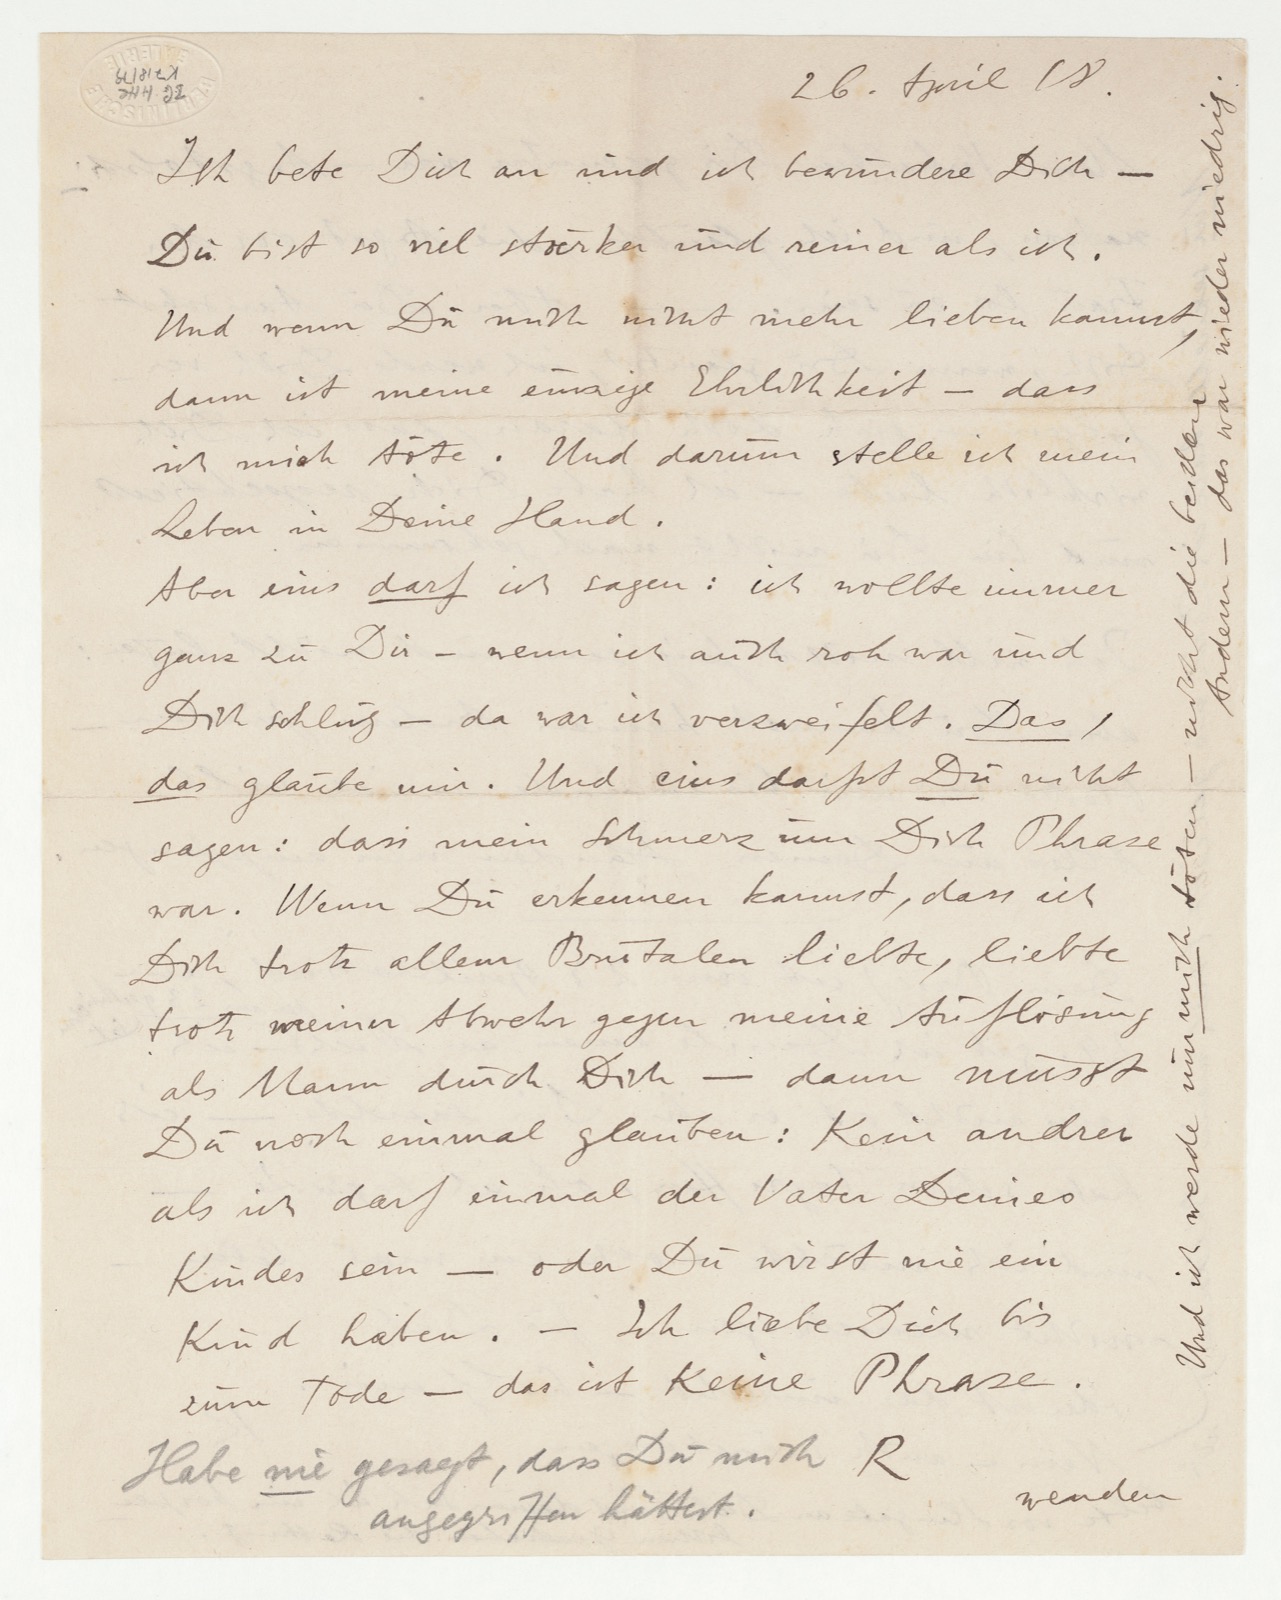 BG-HHC
K 718/79
26. April 18.
Ich bete Dich an und ich bewundere Dich —
Du bist so viel stärker und reiner als ich.
Und wenn Du mich nicht mehr lieben kannst,
dann ist meine einzige Ehrlichkeit — dass
ich mich töte. Und darum stelle ich mein
Leben in Deine Hand.
Aber eins darf ich sagen: ich wollte immer
ganz zu Dir — wenn ich auch roh war und
Dich schlug — da war ich verzweifelt. Das,
das glaube mir. Und eins darfst Du nicht
sagen: dass mein Schmerz um Dich Phrase
war. Wenn Du erkennen kannst, dass ich
Dich trotz allem Brutalen liebte, liebte
trotz meiner Abwehr gegen meine Auflösung
als Mann durch Dich — dann musst
Du noch einmal glauben: Kein andrer
als ich darf einmal der Vater Deines
Kindes sein — oder Du wirst nie ein
Kind haben. — Ich liebe Dich bis
zum Tode — das ist keine Phrase.
R
Habe nie gesagt, dass Du mich
angegriffen hättest.
wenden
Und ich werde nur mich töten — nicht die beiden
Andern — das war wieder niedrig.